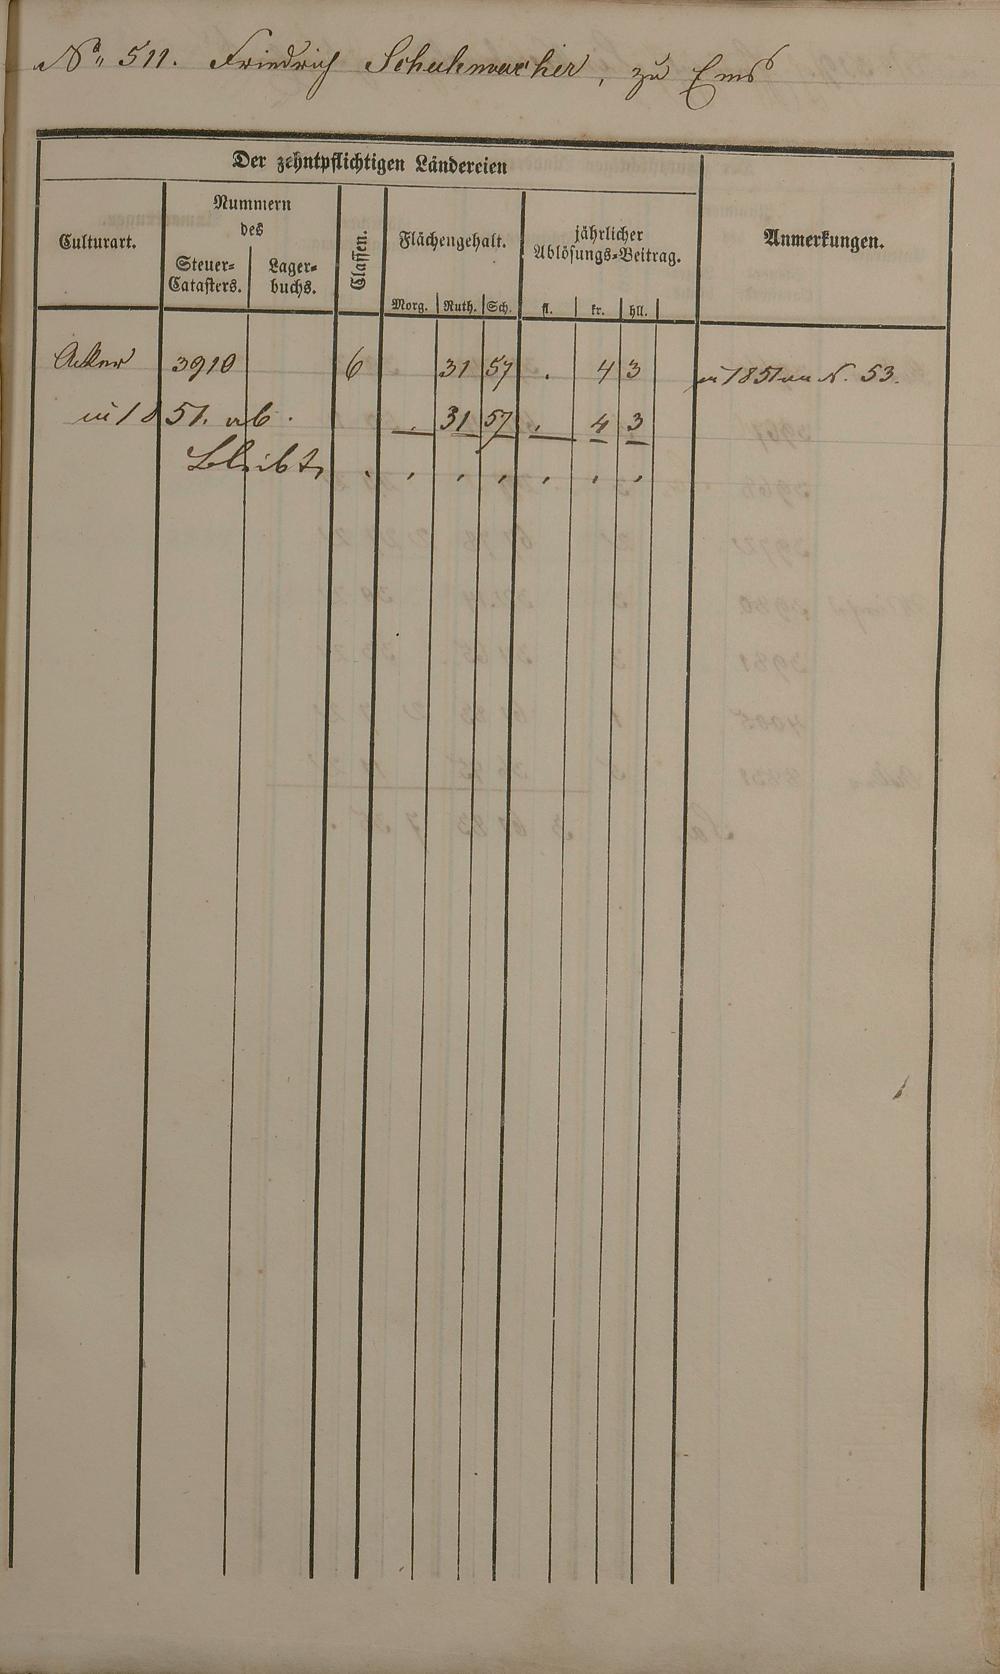 No 511. Friedrich Schuhmacher, zu Ems
Der zehntpflichtigen Ländereien
Culturart.
Nummern
des
Steuer-
Catasters.
Lager-
buchs.
Classen.
Flächengehalt.
Morg. Ruth. Sch.
jährlicher
Ablösungs-Beitrag.
fl. kr. hll.
Anmerkungen.
Acker 3910 6 31 57 . 4 3 in 1851 an N. 53.
in 1851. ab . . 31 57 . 4 3
Bleibt